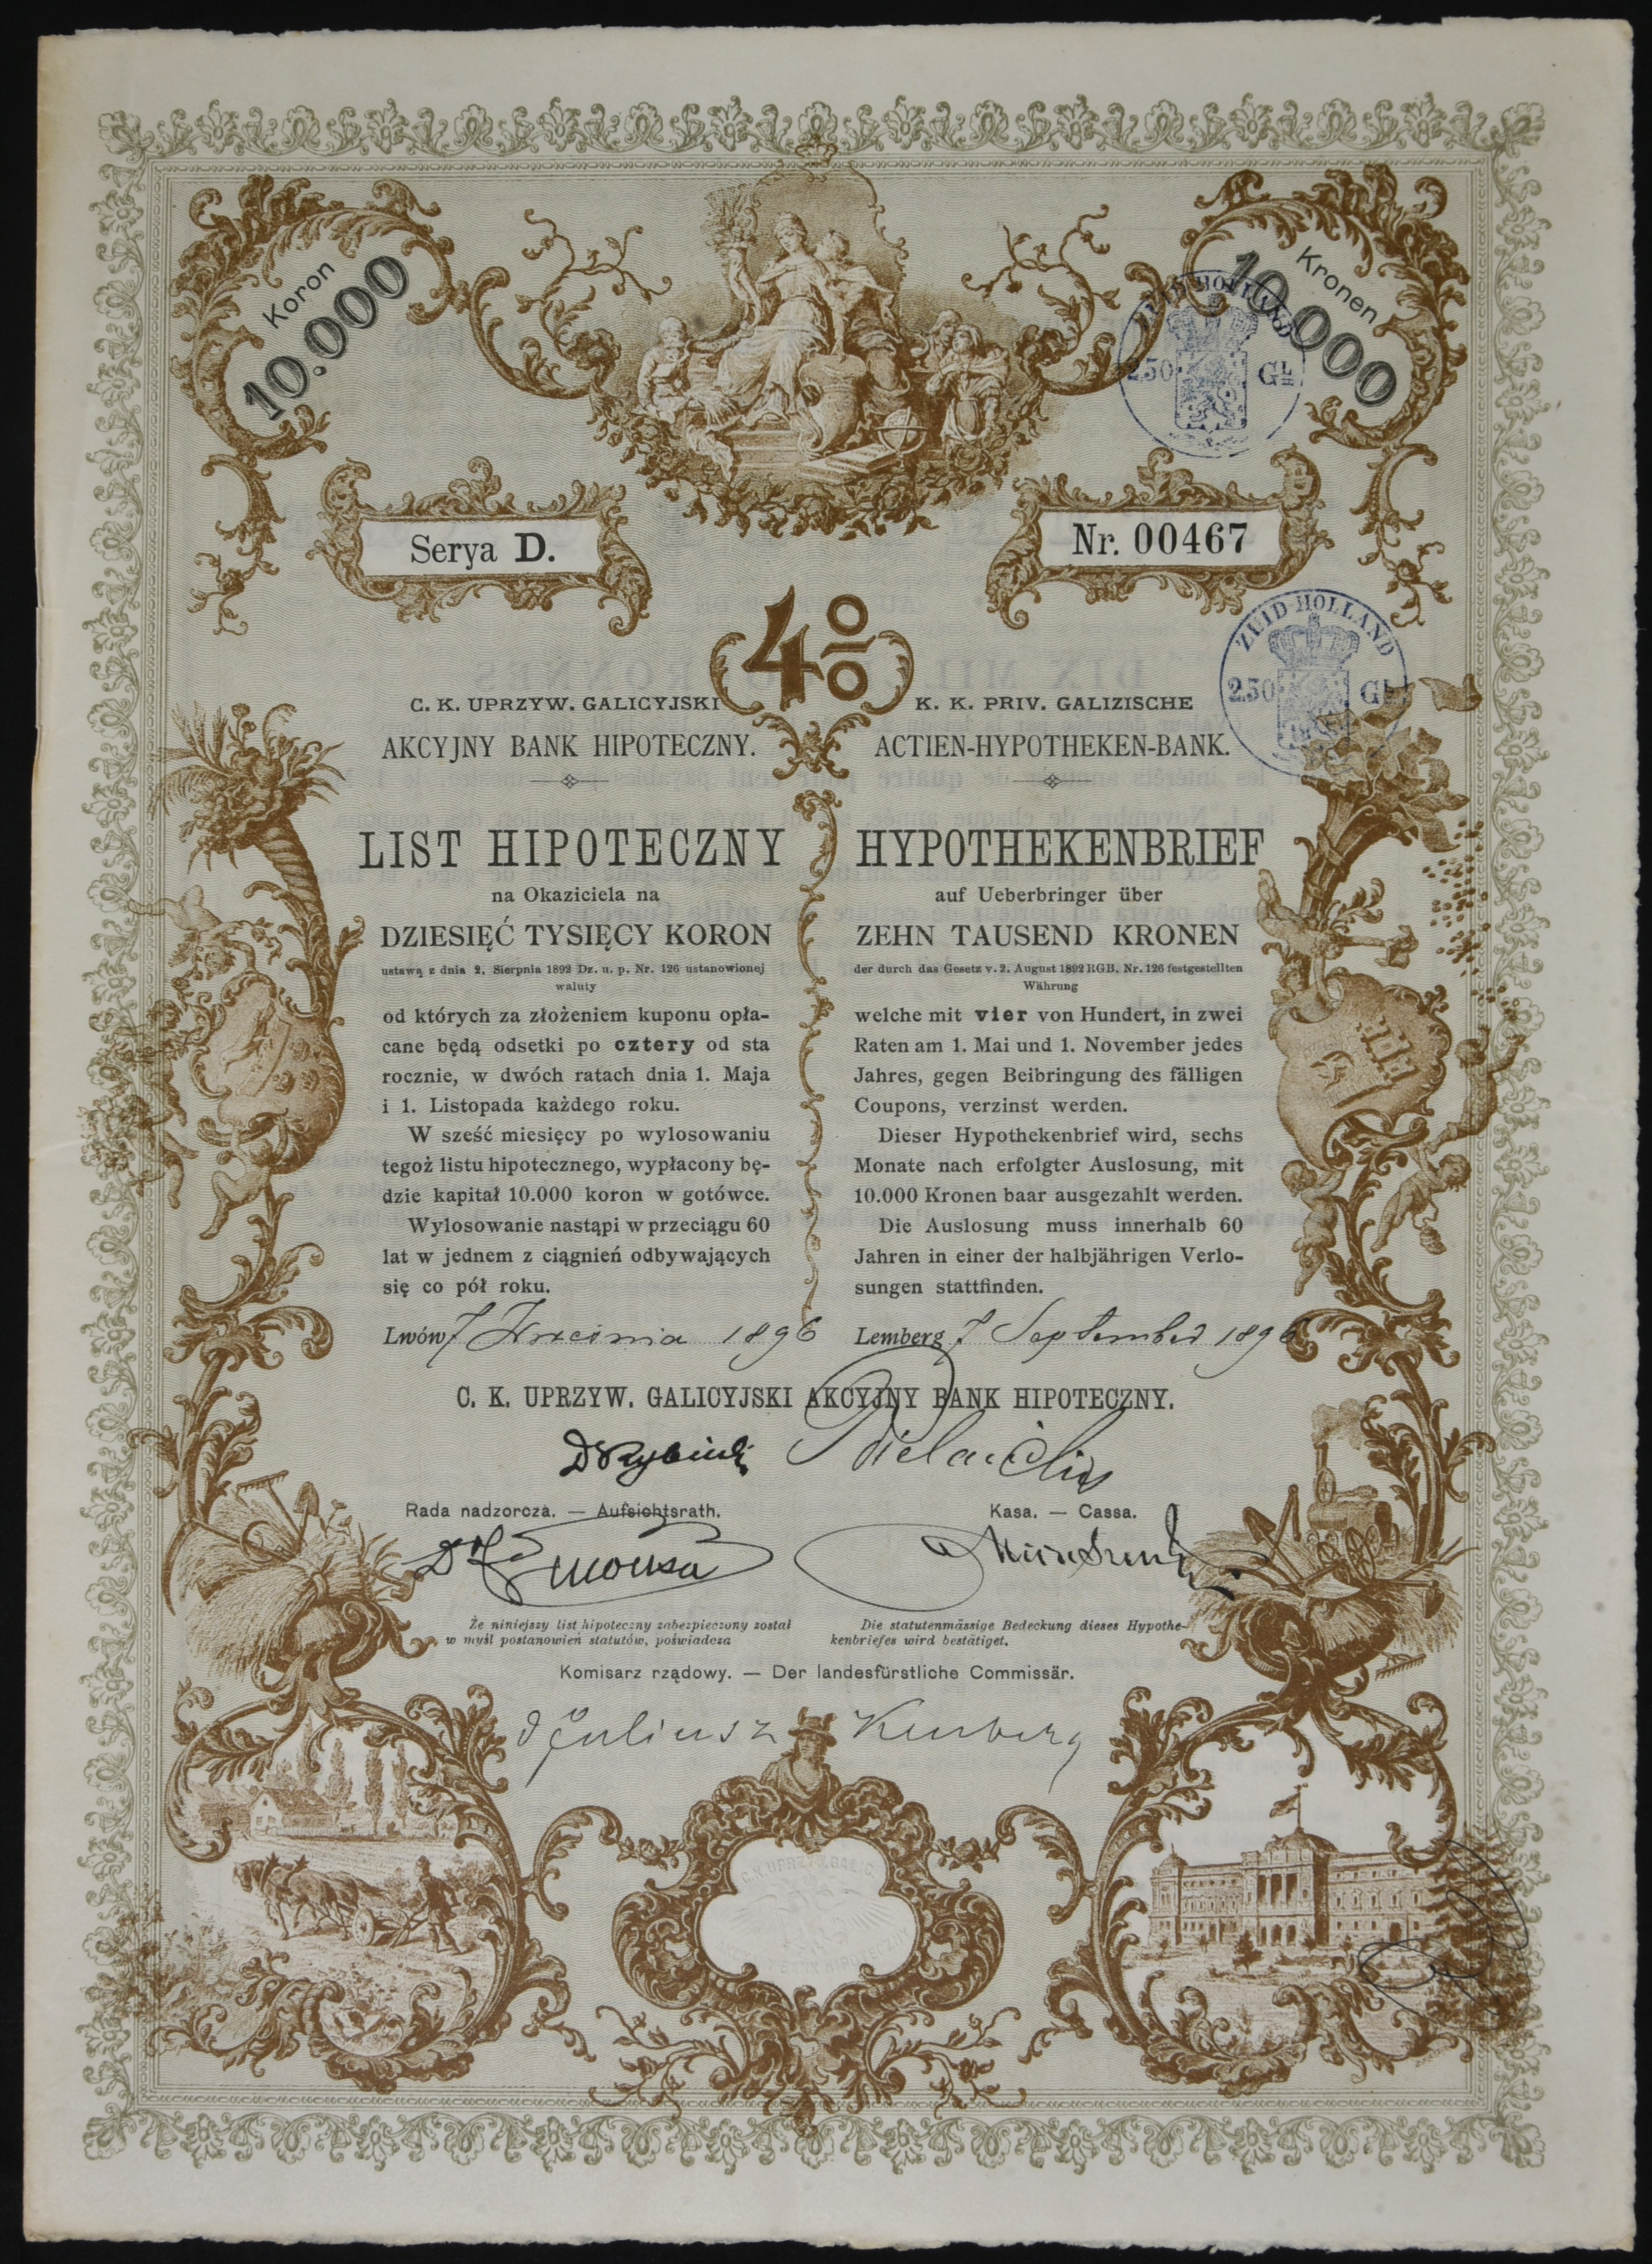 Koron
10.000
Kronen
10.000
ZUID HOLLAND
2.50 GL
Serya D.
Nr. 00467
4%
ZUID-HOLLAND
2.50 GL
C. K. UPRZYW. GALICYJSKI
AKCYJNY BANK HIPOTECZNY.
LIST HIPOTECZNY
na Okaziciela na
DZIESIĘĆ TYSIĘCY KORON
ustawą z dnia 2. Sierpnia 1892 Dz. u. p. Nr. 126 ustanowionej
waluty
od których za złożeniem kuponu opła-
cane będą odsetki po cztery od sta
rocznie, w dwóch ratach dnia 1. Maja
i 1. Listopada każdego roku.
W sześć miesięcy po wylosowaniu
tegoż listu hipotecznego, wypłacony bę-
dzie kapitał 10.000 koron w gotówce.
Wylosowanie nastąpi w przeciągu 60
lat w jednem z ciągnień odbywających
się co pół roku.
Lwów 7 Września 1896
K. K. PRIV. GALIZISCHE
ACTIEN-HYPOTHEKEN-BANK.
HYPOTHEKENBRIEF
auf Ueberbringer über
ZEHN TAUSEND KRONEN
der durch das Gesetz v. 2. August 1892 RGB. Nr. 126 festgestellten
Währung
welche mit vier von Hundert, in zwei
Raten am 1. Mai und 1. November jedes
Jahres, gegen Beibringung des fälligen
Coupons, verzinst werden.
Dieser Hypothekenbrief wird, sechs
Monate nach erfolgter Auslosung, mit
10.000 Kronen baar ausgezahlt werden.
Die Auslosung muss innerhalb 60
Jahren in einer der halbjährigen Verlo-
sungen stattfinden.
Lemberg 7 September 1896
C. K. UPRZYW. GALICYJSKI AKCYJNY BANK HIPOTECZNY.
Rada nadzorcza. — Aufsichtsrath.
Kasa. — Cassa.
Że niniejszy list hipoteczny zabezpieczony został
w myśl postanowień statutów, poświadcza
Die statutenmässige Bedeckung dieses Hypothe-
kenbriefes wird bestätiget.
Komisarz rządowy. — Der landesfürstliche Commissär.
Juliusz
C. K. UPRZYW. GALIC.